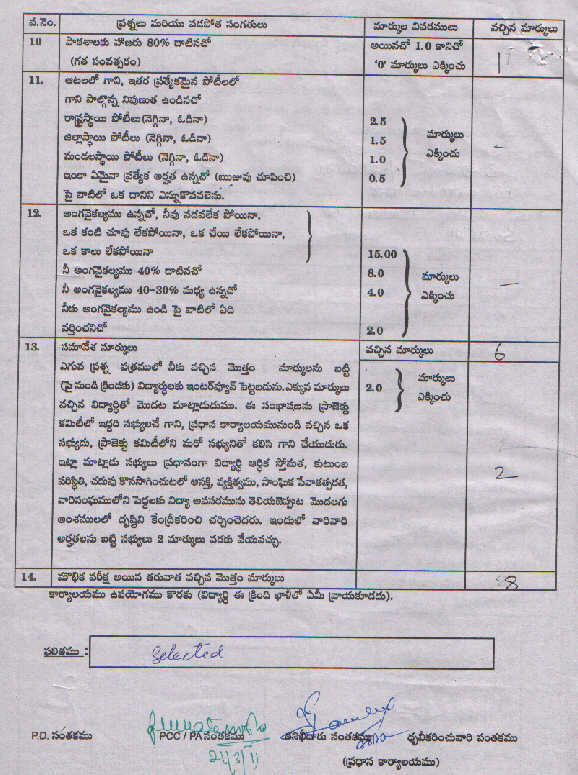 వ.నెం. ప్రశ్నలు మరియు వడపోత సంగతులు మార్కుల వివరములు వచ్చిన మార్కులు
10 పాఠశాలకు హాజరు 80% దాటినచో అయినచో 1.0 కానిచో 1
(గత సంవత్సరం) '0' మార్కులు ఎక్కించు
11. ఆటలలో గాని, ఇతర ప్రత్యేకమైన పోటీలలో
గాని పాల్గొన్న నిపుణుత ఉండినచో
రాష్ట్రస్థాయి పోటీలు(నెగ్గినా, ఓడినా) 2.5 మార్కులు
జిల్లాస్థాయి పోటీలు (నెగ్గినా, ఓడినా) 1.5 ఎక్కించు -
మండలస్థాయి పోటీలు (నెగ్గినా, ఓడినా) 1.0
ఇంకా ఏమైనా ప్రత్యేక అర్హత ఉన్నచో (ఋజువు చూపించి) 0.5
పై వాటిలో ఒక దానిని ఎన్నుకొనవలెను.
12. అంగవైకల్యము ఉన్నచో, నీవు నడవలేక పోయినా,
ఒక కంటి చూపు లేకపోయినా, ఒక చేయి లేకపోయినా,
ఒక కాలు లేకపోయినా 15.00
నీ అంగవైకల్యము 40% దాటినచో 8.0 మార్కులు
నీ అంగవైకల్యము 40-30% మధ్య ఉన్నచో 4.0 ఎక్కించు -
నీకు అంగవైకల్యము ఉండి పై వాటిలో ఏది
వర్తించనిచో 2.0
13. సమావేశ మార్కులు వచ్చిన మార్కులు 6
ఎగువ ప్రశ్న పత్రములో నీకు వచ్చిన మొత్తం మార్కులను బట్టి మార్కులు
(పై నుండి క్రిందకు) విద్యార్థులకు ఇంటర్వ్యూన్ పెట్టబడును.ఎక్కువ మార్కులు 2.0 ఎక్కించు
వచ్చిన విద్యార్థితో మొదట మాట్లాడుదుము. ఈ సంభాషణను ప్రాజెక్టు
కమిటీలో ఇద్దరి సభ్యులచే గాని, ప్రధాన కార్యాలయమునుండి వచ్చిన ఒక
సభ్యుడు, ప్రాజెక్టు కమిటీలోని మరో సభ్యునితో కలిసి గాని చేయుదురు.
ఇట్లా మాట్లాడు సభ్యులు ప్రధానంగా విద్యార్థి ఆర్థిక స్తోమత, కుటుంబ
పరిస్థితి, చదువు కొనసాగించుటలో ఆసక్తి, వ్యక్తిత్వము, సాంఘిక సేవాతత్పరత, 2
వారిసంఘములోని పెద్దలకు విద్యా అవసరమును తెలియజెప్పుట మొదలగు
అంశములలో దృష్టిని కేంద్రీకరించి చర్చించెదరు. ఇందులో వారివారి
అర్హతలను బట్టి సభ్యులు 2 మార్కులు వరకు వేయవచ్చు.
14. మౌఖిక పరీక్ష అయిన తరువాత వచ్చిన మొత్తం మార్కులు 8
కార్యాలయము ఉపయోగము కొరకు (విద్యార్థి ఈ క్రింది ఖాళీలో ఏమీ వ్రాయకూడదు).
ఫలితము : Selected
P.O. సంతకము PCC / PA సంతకము సంతకము ధృవీకరించువారి సంతకము
(ప్రధాన కార్యాలయము)